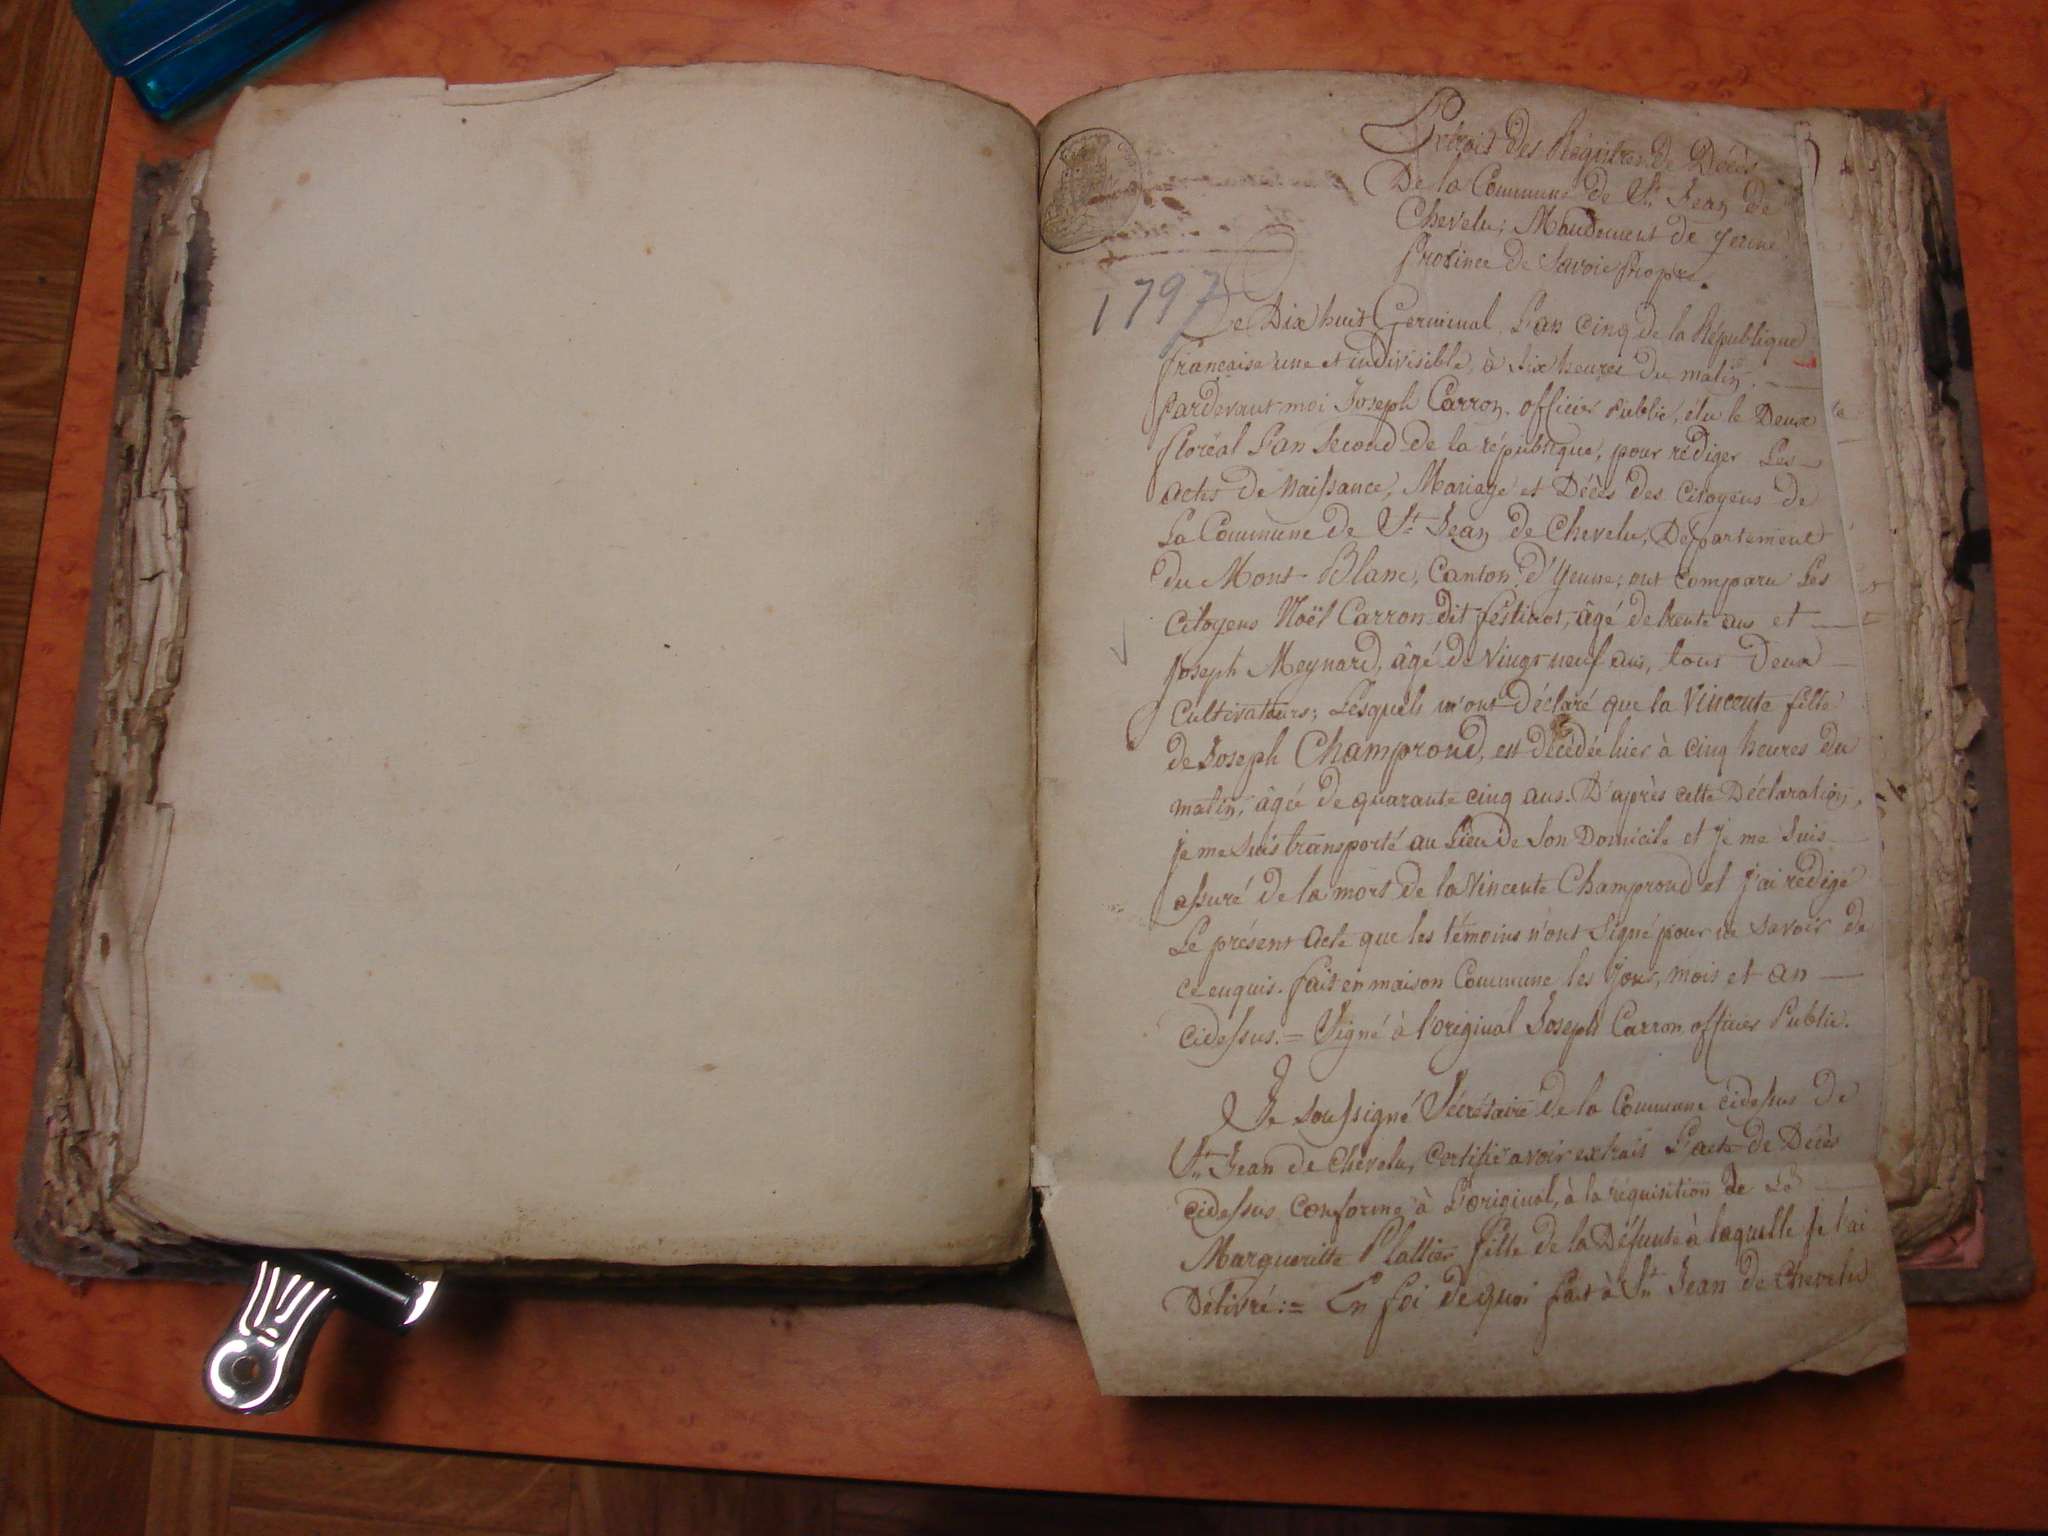 Extrait des Registres de Décès
De la Commune de St. Jean de
Chevelu, Mandement de Yenne
Province de Savoie Propre.
1797
Le Dix huit Germinal, L'an cinq de la République
française une et indivisible, à six heures du matin.
Pardevant moi Joseph Carron, officier Public, élu le Deux
floréal L'an second de la république, pour rédiger Les
actes de Naissance, Mariage et Décès des Citoyens de
La Commune de St. Jean de Chevelu, Département
du Mont-Blanc, Canton d'Yenne; ont comparu Les
Citoyens Noël Carron dit festinot, âgé de trente ans et
Joseph Meynard, âgé de Vingt neuf ans, tous Deux
Cultivateurs; Lesquels m'ont Déclaré que la Vincente fille
de Joseph Champrond, est décédée hier à cinq heures du
matin, âgée de quarante cinq ans. D'après cette Déclaration,
je me suis transporté au Lieu de son Domicile et je me suis
assuré de la mort de la Vincente Champrond et j'ai rédigé
Le présent acte que les témoins n'ont signé pour ne savoir de
ce enquis. fait en maison Commune les Jour, mois et an
cidessus. = Signé à l'original Joseph Carron officier Public.
Je soussigné Sécrétaire de la Commune cidessus de
St. Jean de Chevelu, certifie avoir extrait L'acte de Décès
cidessus conforme à L'original, à la réquisition de La
Margueritte Plattier fille de la Défunte à laquelle je l'ai
Délivré := En foi de quoi fait à St. Jean de Chevelu